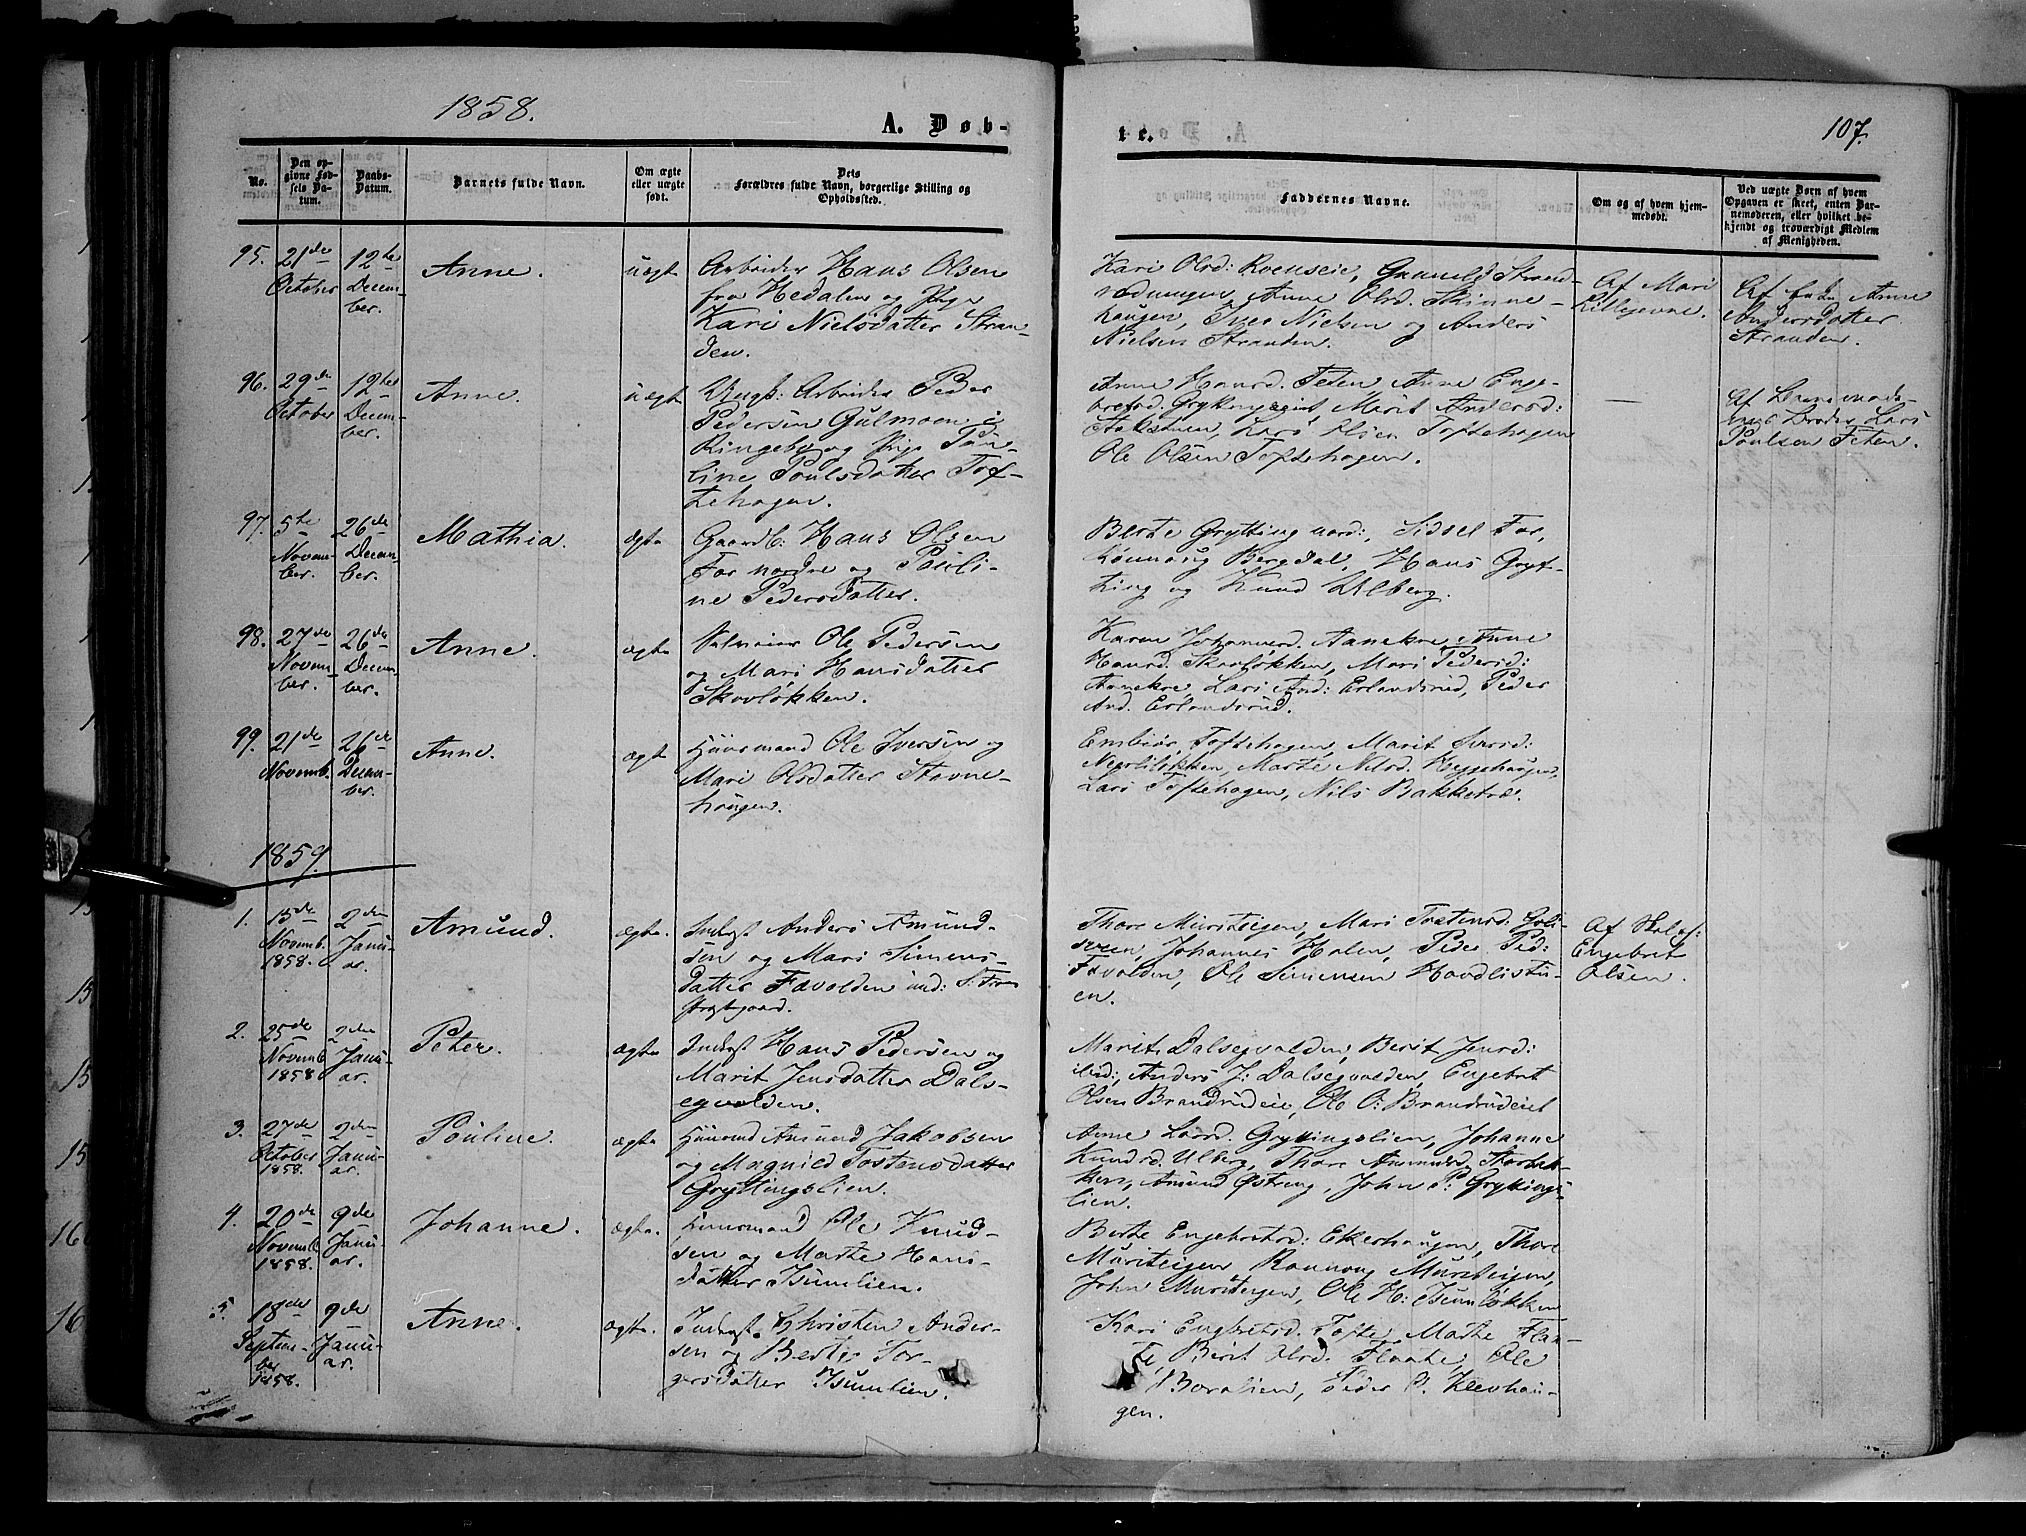 1858.
A. Døb-
te.
107.
No.
Den op-
givne Fød-
sels Da-
tum.
Daabs-
Datum.
Barnets fulde Navn.
Om ægte
eller uægte
født.
Dets
Forældres fulde Navn, borgerlige Stilling og
Opholdssted.
Faddernes Navne.
Om og af hvem hjem-
medøbt.
Ved uægte Børn af hvem
Opgaven er skeet, enten Bar-
nemoderen, eller hvilket be-
kjendt og troværdigt Medlem
af Menigheden.
95.
21de
October
12te
Decem-
ber.
Anne.
uægt
Arbeider Hans Olsen
fra Hedalen og Pige
Kari Nielsdatter Stran-
den.
Kari Olsd: Gunild Strand-
Anne Olsd. Skinne-
haugen, Iver Nielsen og Anders
Nielsen Stranden.
Af Mari
Lillejevne.
Af Anne
Andersdatter
Stranden.
96.
29de
October
12te
Decem-
ber.
Anne.
uægt
Ungk: Arbeider Peder
Pedersen Gulmoen i
Ringebo og Pige Pau-
line Poulsdatter Tof-
tehagen.
Anne Hansd. Feten Anne Enge-
bretsd. Marit Andersd:
Lars Olsen Toftehagen
Ole Olsen Toftehagen.
—
Af Barnemode-
rens Broder Lars
Poulsen Feten.
97.
5te
Novem-
ber.
26de
Decem-
ber.
Mathia.
ægte
Gaardb: Hans Olsen
For nordre og Pauli-
ne Pedersdatter.
Berte Grytting nord:, Sidsel For,
Rønnaug Bergdal, Hans Gryt-
ting og Knud Ulberg.
98.
27de
Novem-
ber.
26de
Decem-
ber.
Anne.
ægte
Selveier Ole Pedersen
og Mari Hansdatter
Skovløkken.
Karen Johannesd. Aanekre, Anne
Hansd. Skovløkken, Mari Pedersd:
Aanekre, Lars And: Erlandsrud, Peder
And. Erlandsrud.
99.
21de
Novemb.
26de
Decem-
ber.
Anne.
ægt
Huusmand Ole Iversen og
Mari Olsdatter Stavne-
haugen.
Embiør Toftehagen, Marit Iversd:
Marte Nilsd. Heggehaugen,
Lars Toftehagen, Nils Bakketræ.
1859.
1.
15de
Novemb.
1858.
2den
Janu-
ar.
Amund.
ægte.
Inderst Anders Amund-
sen og Mari Simens-
datter Favolden und: S. Frons
Præstgaard.
Thore Muristeigen, Mari Tostensd:
Johannes Halen, Peder Ped:
Favolden, Ole Simensen Havdlistu-
en.
Af Skolef:
Engebret
Olsen.
2.
25de
Novemb
1858
2den
Janu-
ar.
Peter.
ægte
Inderst Hans Pedersen og
Marit Jensdatter Dals-
egvolden.
Marit Dalsegvolden, Berit Jensd:
ibid:, Anders J: Dalsegvolden, Engebret
Olsen Brandrudeie, Ole O: Brandrudeiet
3.
27de
October
1858.
2den
Janu-
ar.
Pouline.
ægte
Huusmd Amund Jakobsen
og Magnild Tostensdatter
Gryttingslien.
Anne Larsd. Gryttingslien, Johanne
Knudsd. Ulberg, Thore Amunds.
Amund Østreng, John P: Gryttings-
lien.
4.
20de
Novemb
1858.
9de
Janu-
ar.
Johanne.
ægte.
Huusmand Ole Knud-
sen og Marthe Hans-
datter Isumlien.
Berte Engebretsd: Ekkerhaugen, Thore
Muristeigen, Rannoug Muristeigen,
John Muristeigen, Ole H: Isumløkken
5.
18de
Septem-
ber
1858.
9de
Janu-
ar.
Anne.
ægte.
Inderst Christen Ander-
sen og Berte Tor-
gersdatter Isumlien.
Kari Engbretsd. Tofte, Mathe Flaa-
te, Berit Olsd. Flaate, Ole
Boralien, Peder P. Klevhau-
gen.